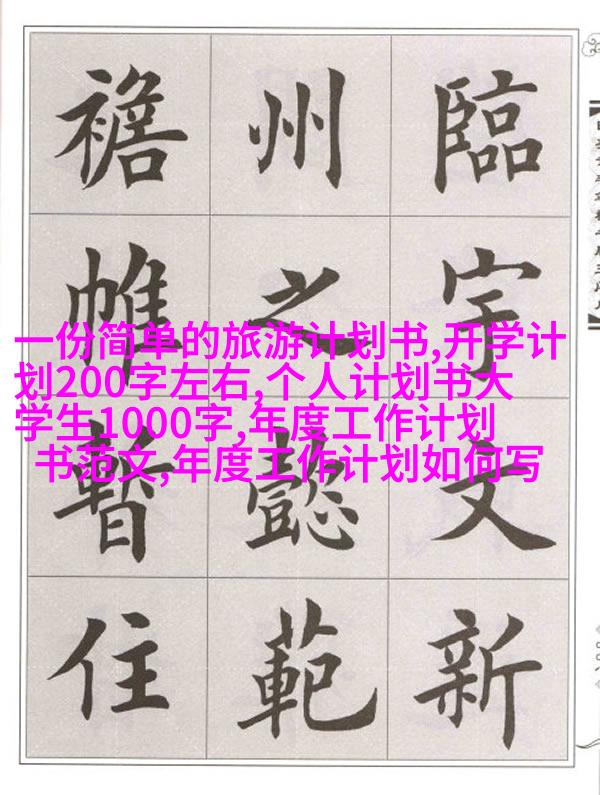 臨宇文新
州之懿範
襜帷暫住
一份简单的旅游计划书,开学计
划200字左右,个人计划书大
学生1000字,年度工作计划
书范文,年度工作计划如何写